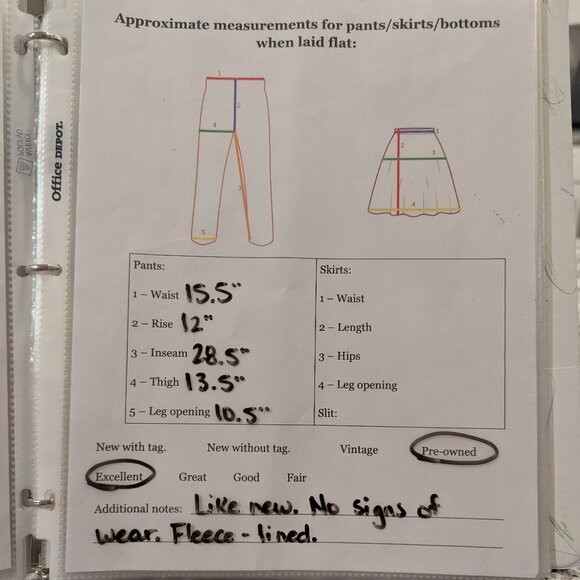 Approximate measurements for pants/skirts/bottoms
when laid flat:
1
2
4
3
5
1
2
3
4
Office DEPOT.
Pants:
1 – Waist 15.5"
2 – Rise 12"
3 – Inseam 28.5"
4 – Thigh 13.5"
5 – Leg opening 10.5"
Skirts:
1 – Waist
2 – Length
3 – Hips
4 – Leg opening
Slit:
New with tag. New without tag. Vintage Pre-owned
Excellent Great Good Fair
Additional notes: Like new. No signs of
wear. Fleece-lined.